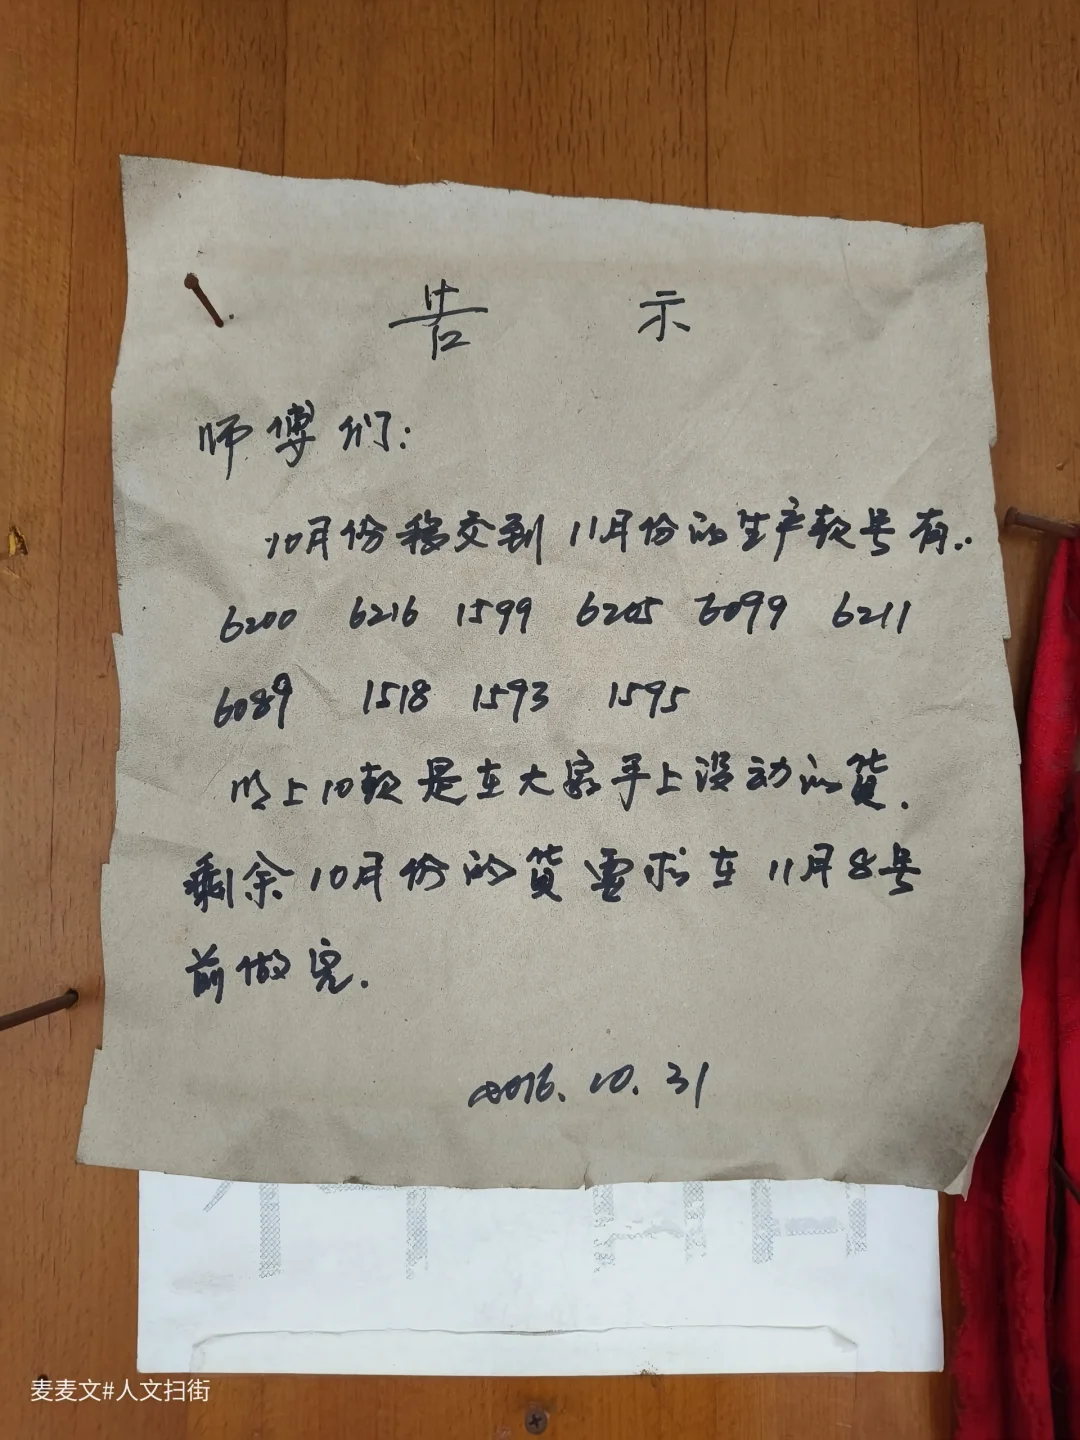 告 示
师傅们:
10月份移交到11月份的生产款号有..
6200 6216 1599 6205 6099 6211
6089 1518 1593 1595
以上10款是在大家手上没动的货.
剩余10月份的货要求在11月8号
前做完.
2016.10.31
麦麦文#人文扫街